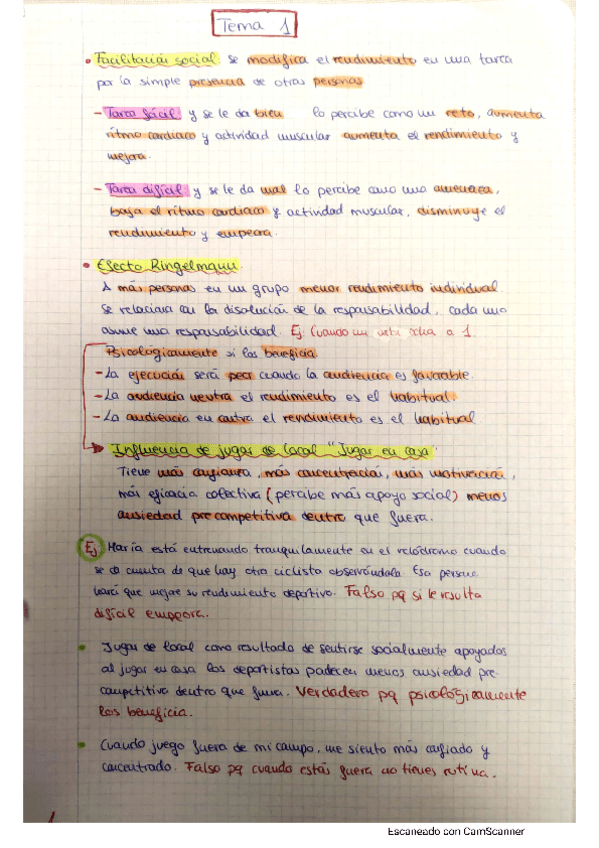 Tema 1
• Facilitación social se modifica el rendimiento en una tarea
por la simple presencia de otras personas
- Tarea fácil y se le da bien lo percibe como un reto, aumenta
ritmo cardiaco y actividad muscular aumenta el rendimiento y
mejora.
- Tarea dificil y se le da mal lo percibe como una amenaza,
baja el ritmo cardiaco y actividad muscular, disminuye el
rendimiento y empeora.
• Efecto Ringelmann.
A más personas en un grupo menor rendimiento individual
se relaciona con la disolución de la responsabilidad, cada uno
asume una responsabilidad. Ej: Cuando un a 1.
Psicológicamente si los beneficia
- La ejecución será peor cuando la audiencia es favorable.
- La audiencia neutra el rendimiento es el habitual.
- La audiencia en contra el rendimiento es el habitual
Influencia de jugar de local "Jugar en casa"
Tiene más confianza, más concentración, más motivación,
más eficacia colectiva (percibe más apoyo social) menos
ansiedad precompetitiva dentro que fuera.
Ej María está entrenando tranquilamente en el velódromo cuando
se da cuenta de que hay otra ciclista observándola. Esa persona
hará que mejore su rendimiento deportivo. Falso pq si le resulta
dificil empeora.
• Jugar de local como resultado de sentirse socialmente apoyados
al jugar en casa los deportistas padecen menos ansiedad pre-
competitiva dentro que fuera. Verdadero pq psicológicamente
los beneficia.
• Cuando juego fuera de mi campo, me siento más confiado y
concentrado. Falso pq cuando estás fuera no tienes rutina.
Escaneado con CamScanner